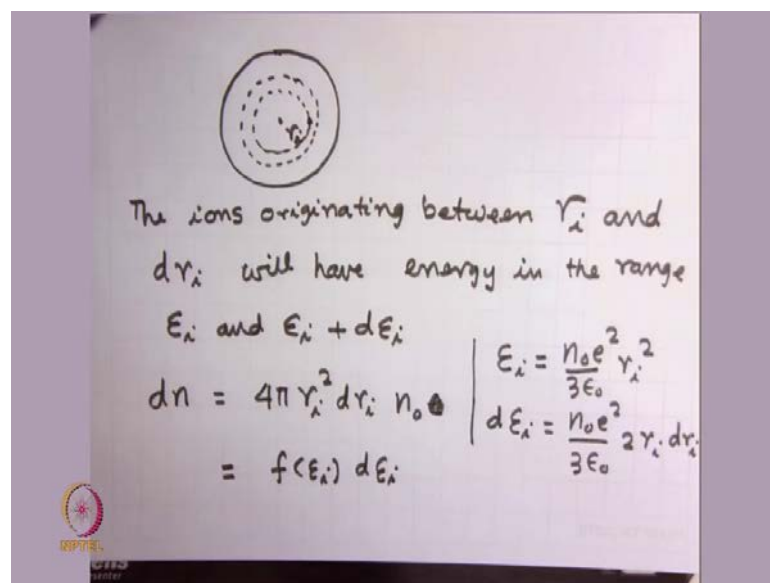 r_i
The ions originating between r_i and
dr_i will have energy in the range
ε_i and ε_i + dε_i
dn = 4π r_i² dr_i n₀
= f(ε_i) dε_i
ε_i = n₀e²/3ε₀ r_i²
dε_i = n₀e²/3ε₀ 2 r_i dr_i
NPTEL